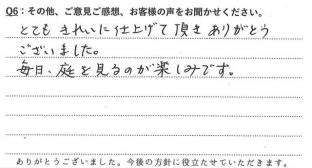 Q6：その他、ご意見ご感想、お客様の声をお聞かせください。
とても きれいに仕上げて頂き ありがとう
ございました。
毎日、庭を見るのが楽しみです。
ありがとうございました。今後の方針に役立たせていただきます。